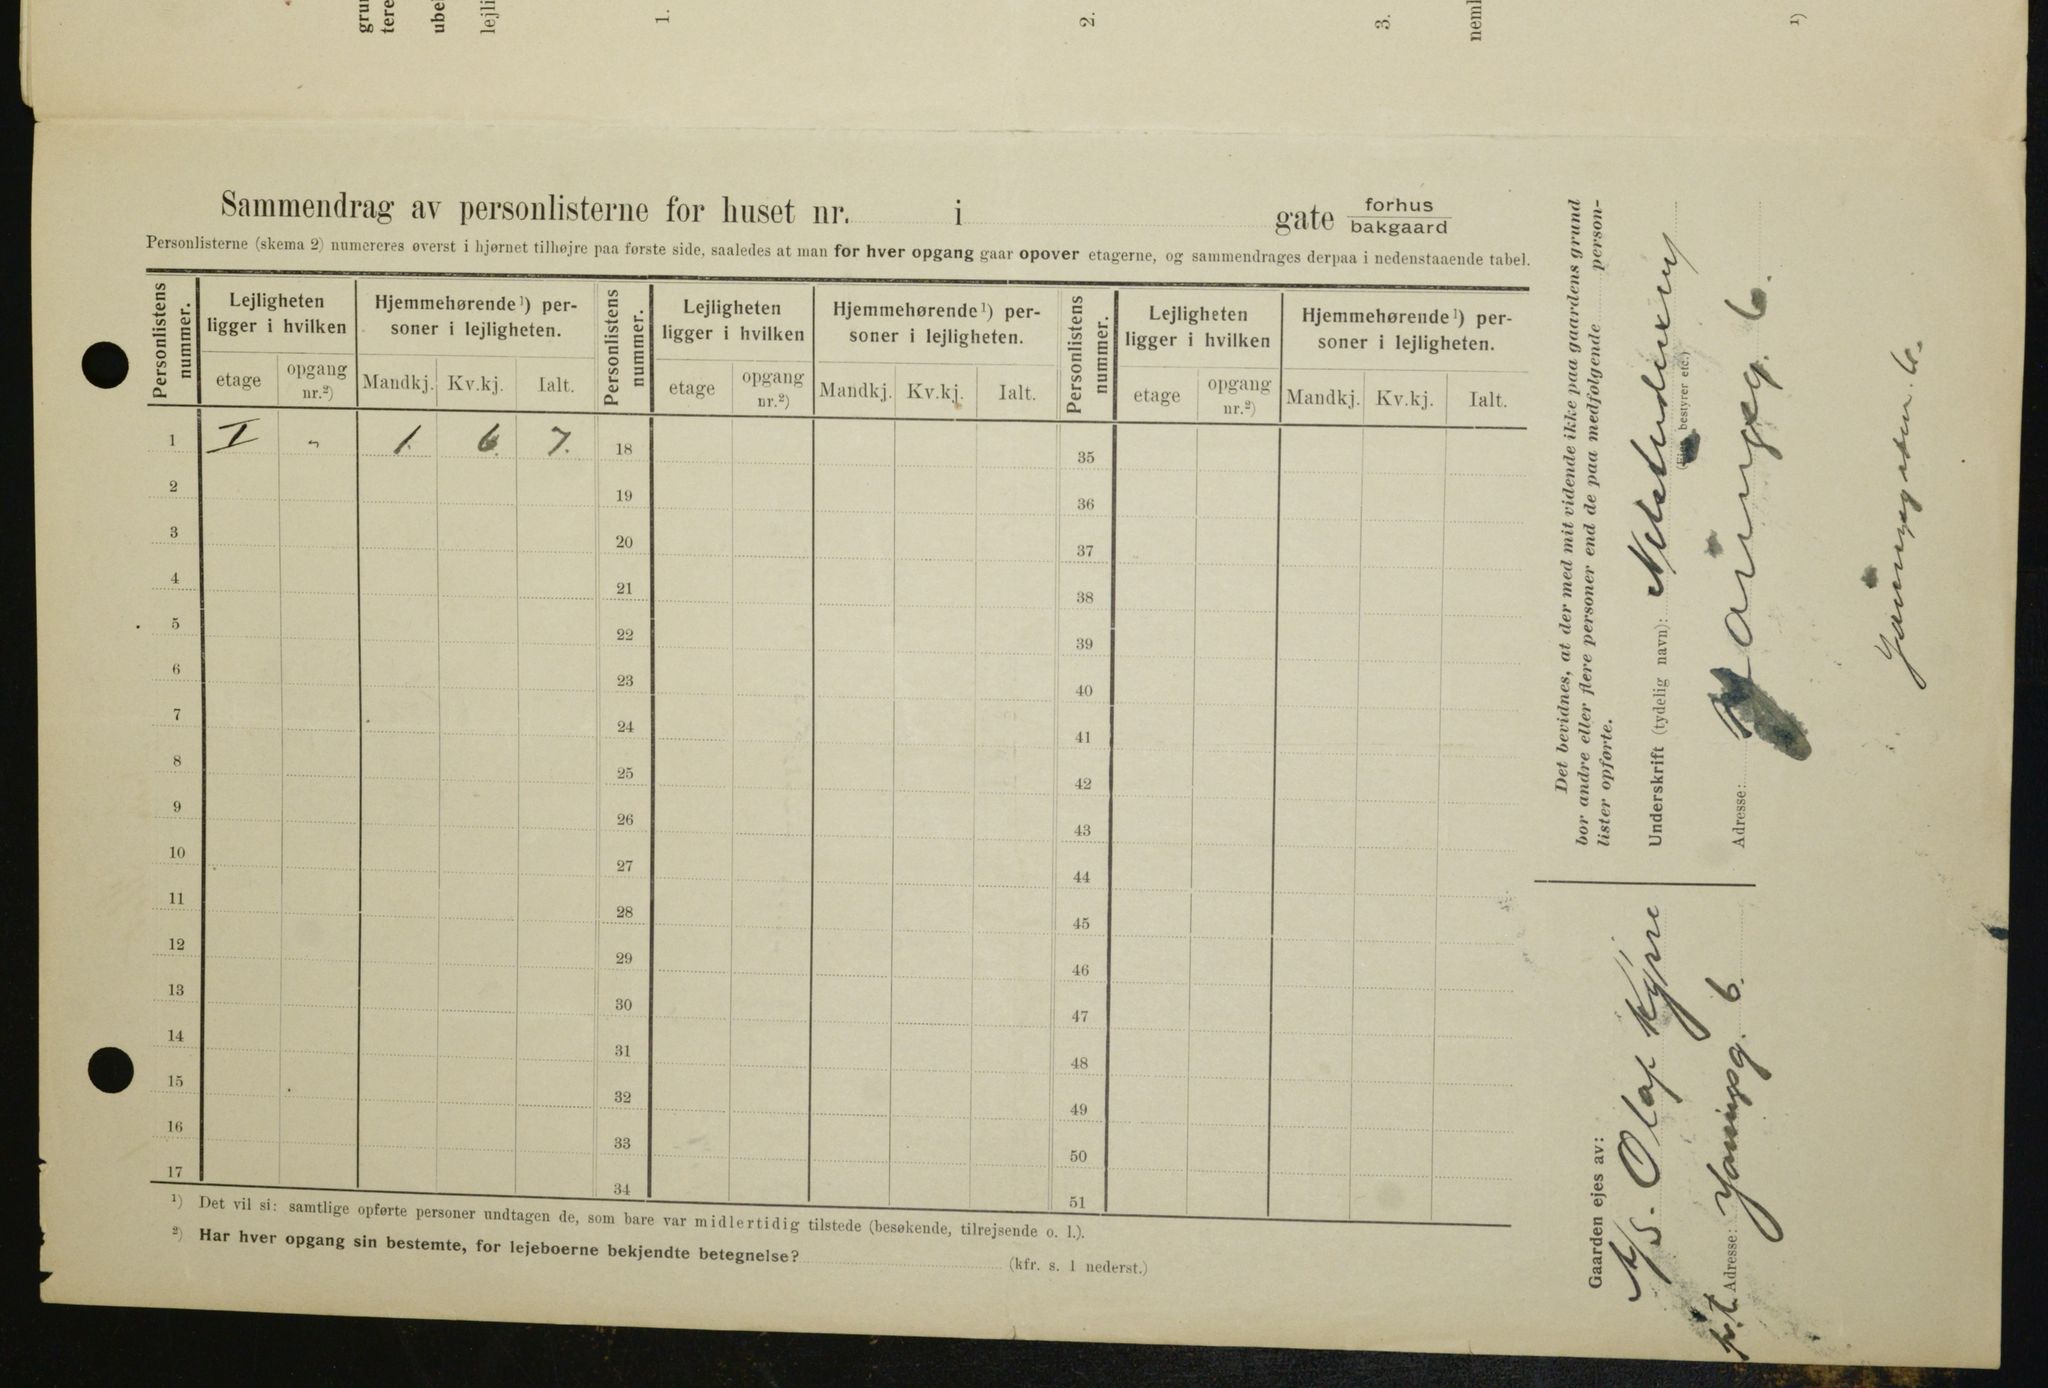 grun
tere
ube
lejli
1.
2.
3.
neml
1)
Sammendrag av personlisterne for huset nr. i gate forhus
bakgaard
Personlisterne (skema 2) numereres øverst i hjørnet tilhøjre paa første side, saaledes at man for hver opgang gaar opover etagerne, og sammendrages derpaa i nedenstaaende tabel.
Personlistens nummer. Lejligheten ligger i hvilken Hjemmehørende 1) personer i lejligheten. Personlistens nummer. Lejligheten ligger i hvilken Hjemmehørende 1) personer i lejligheten. Personlistens nummer. Lejligheten ligger i hvilken Hjemmehørende 1) personer i lejligheten.
etage opgang nr.2) Mandkj. Kv.kj. Ialt. etage opgang nr.2) Mandkj. Kv.kj. Ialt. etage opgang nr.2) Mandkj. Kv.kj. Ialt.
1 I " 1. 6. 7. 18 35
2 19 36
3 20 37
4 21 38
5 22 39
6 23 40
7 24 41
8 25 42
9 26 43
10 27 44
11 28 45
12 29 46
13 30 47
14 31 48
15 32 49
16 33 50
17 34 51
1) Det vil si: samtlige opførte personer undtagen de, som bare var midlertidig tilstede (besøkende, tilrejsende o. l.).
2) Har hver opgang sin bestemte, for lejeboerne bekjendte betegnelse?
(kfr. s. 1 nederst.)
Det bevidnes, at der med mit vidende ikke paa gaardens grund
bor andre eller flere personer end de paa medfølgende person-
lister opførte.
Underskrift (tydelig navn):
(Eier, bestyrer etc.)
Adresse: 6.
Gaarden ejes av:
A/S. Olaf Kyrre
Adresse: 6.